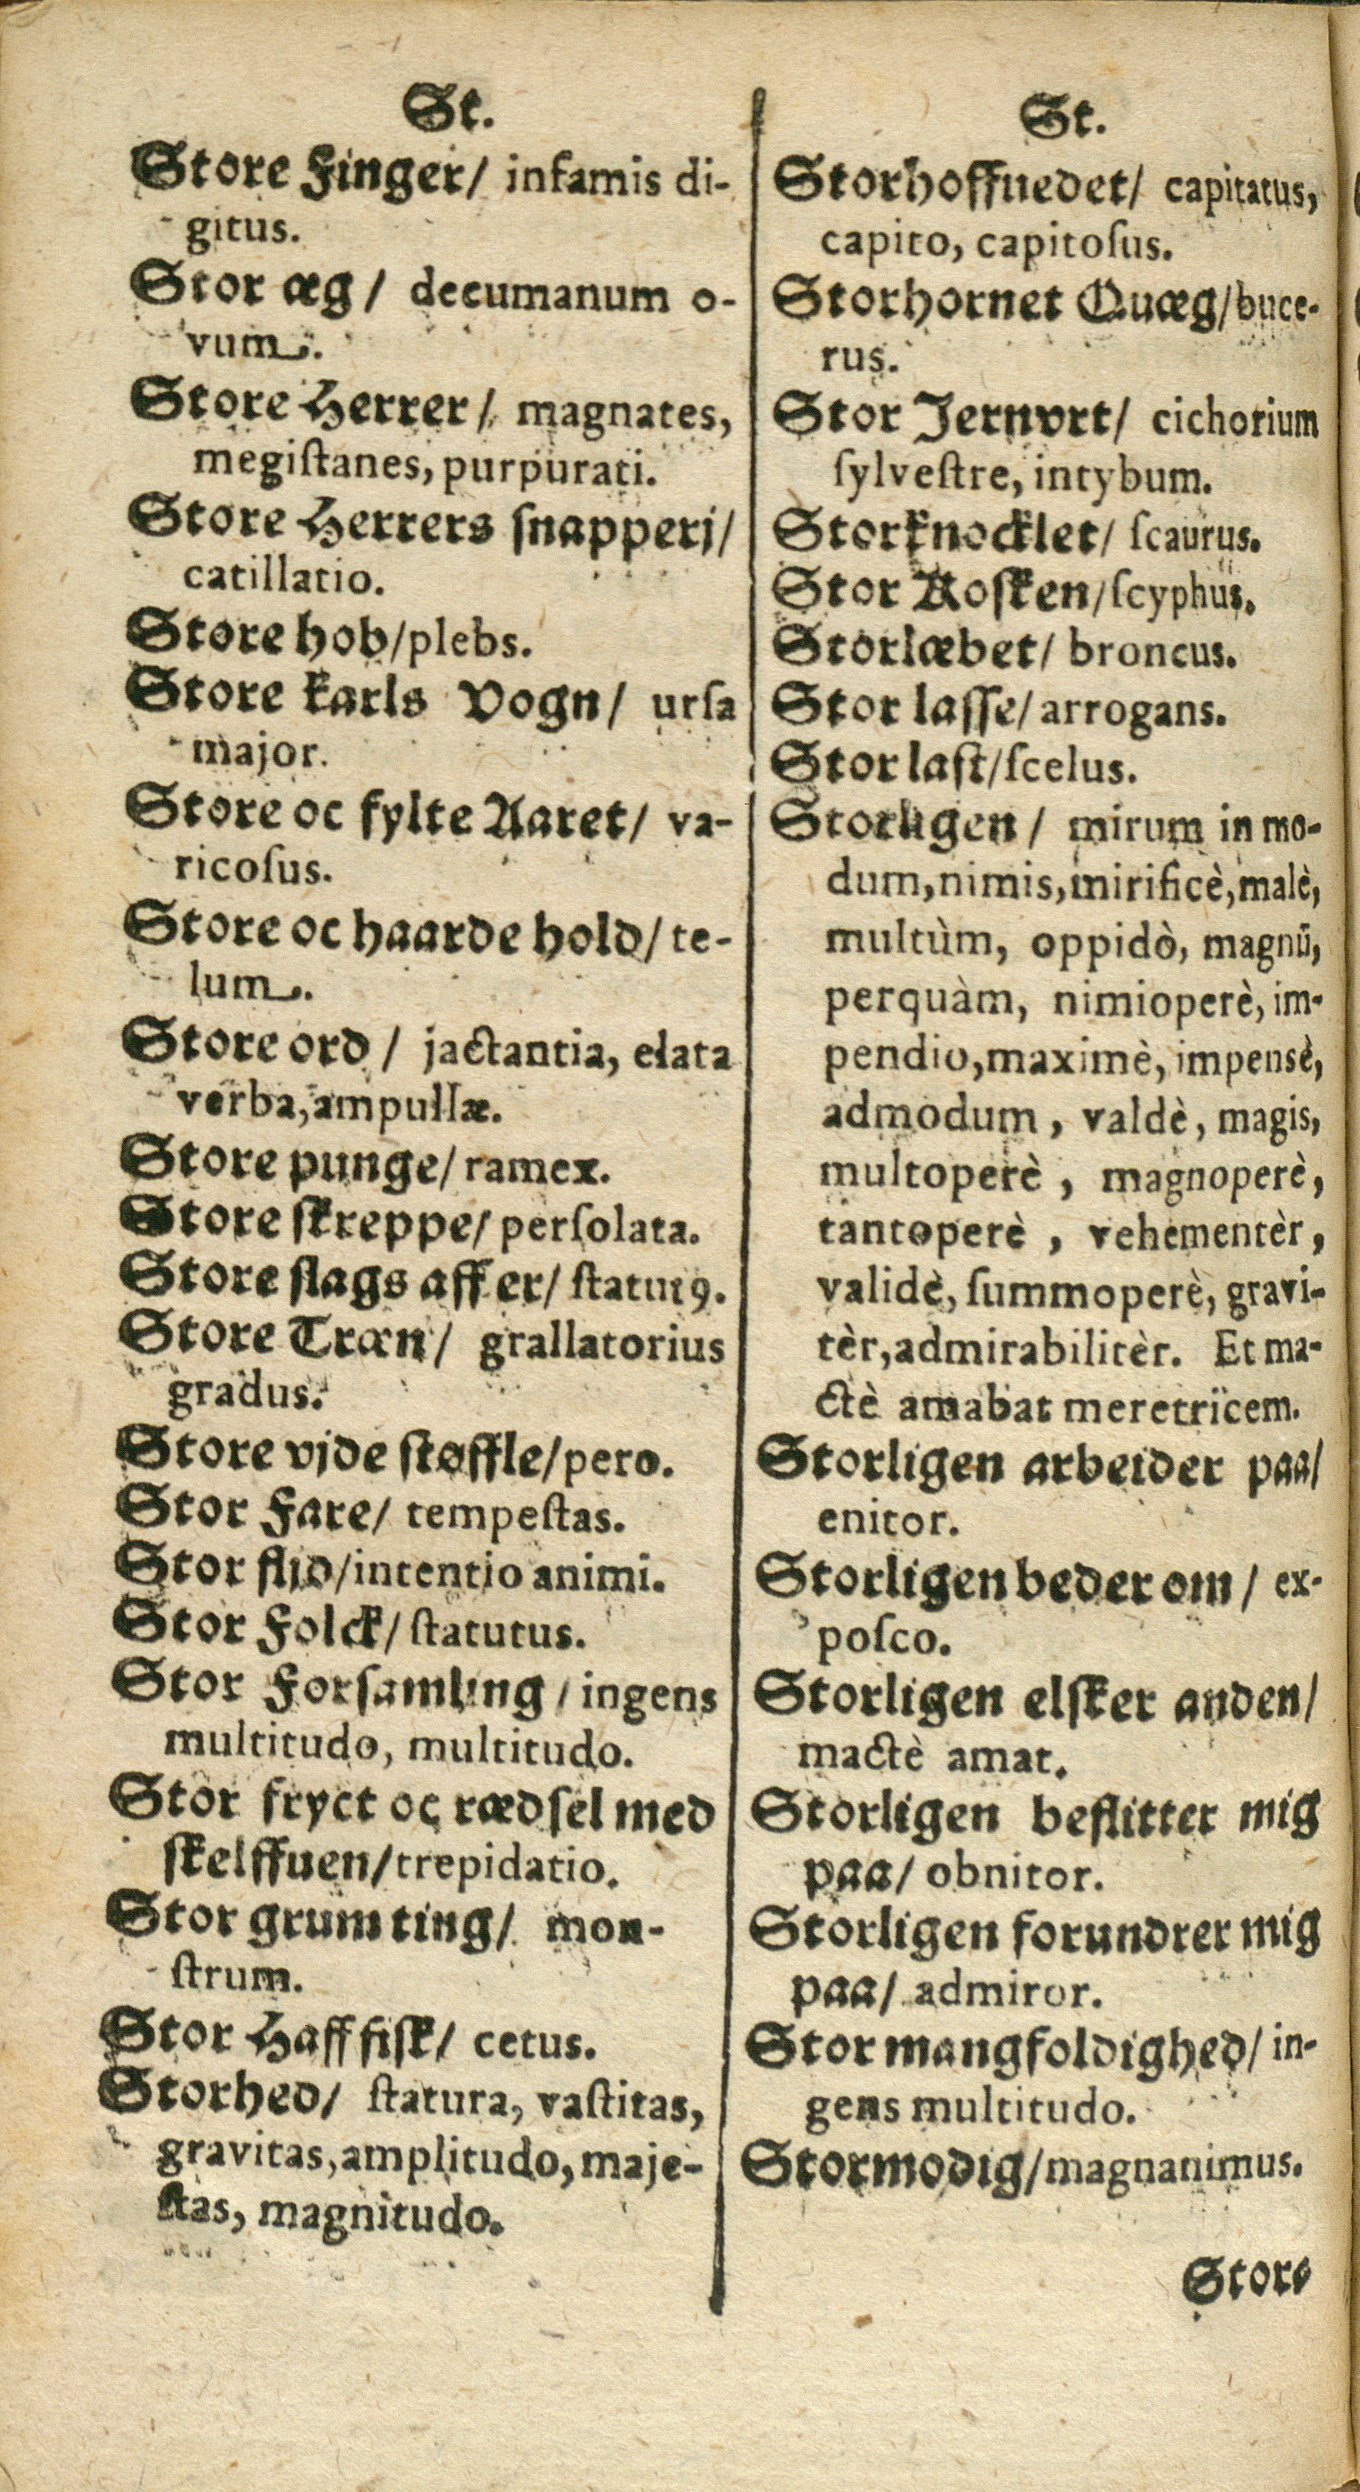 St.
Store Finger/ infamis di-
gitus.
Stor æg/ decumanum o-
vum.
Store Herrer/ magnates,
megiſtanes, purpurati.
Store Herrers ſnapperj/
catillatio.
Store hob/plebs.
Store karls Vogn/ urſa
major.
Store oc fylte Aaret/ va-
ricoſus.
Store oc haarde hold/ te-
lum.
Store ord/ jactantia, elata
verba, ampullæ.
Store punge/ ramex.
Store ſkreppe/ perſolata.
Store ſlags aff er/ ſtatutꝰ.
Store Træn/ grallatorius
gradus.
Store vjde ſtøffle/pero.
Stor Fare/ tempeſtas.
Stor flid/intentio animi.
Stor Folck/ ſtatutus.
Stor Forſamling/ ingens
multitudo, multitudo.
Stor fryct oc rædſel med
ſkelffuen/trepidatio.
Stor grum ting/ mon-
ſtrum.
Stor Haff fiſk/ cetus.
Storhed/ ſtatura, vaſtitas,
gravitas, amplitudo, maje-
ſtas, magnitudo.
St.
Storhoffuedet/ capitatus,
capito, capitoſus.
Storhornet Quæg/buce-
rus.
Stor Jernvrt/ cichorium
ſylveſtre, intybum.
Storknocklet/ ſcaurus.
Stor Koſken/ſcyphus.
Storlæbet/ broncus.
Stor laſſe/ arrogans.
Stor laſt/ſcelus.
Storligen/ mirum in mo-
dum, nimis, mirificè, malè,
multùm, oppidò, magnū,
perquàm, nimioperè, im-
pendio, maximè, impensè,
admodum, valdè, magis,
multoperè, magnoperè,
tantoperè, vehementèr,
validè, ſummoperè, gravi-
tèr, admirabilitèr. Et ma-
ctè amabat meretricem.
Storligen arbeider paa/
enitor.
Storligen beder om/ ex-
poſco.
Storligen elſker anden/
mactè amat.
Storligen beflitter mig
paa/ obnitor.
Storligen forundrer mig
paa/ admiror.
Stor mangfoldighed/ in-
gens multitudo.
Stormodig/magnanimus.
Store